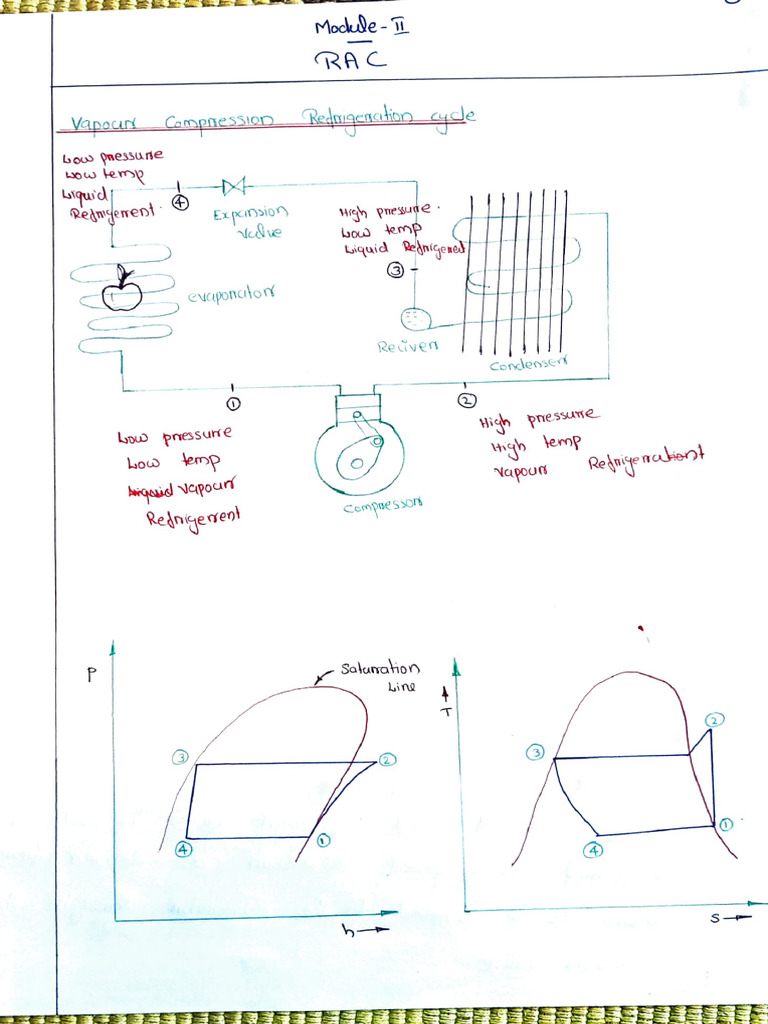 Module-II
RAC
Vapour Compression Refrigeration cycle
Low pressure
Low temp
Liquid
Refrigerent
4
Expansion
valve
High pressure
Low temp
Liquid Refrigerent
3
evaporator
Reciver
Condenser
1
2
Low pressure
Low temp
Vapour
Refrigerent
High pressure
High temp
Vapour Refrigerationt
Compressor
P
Saturation
Line
3
2
4
1
h
T
2
3
1
4
S